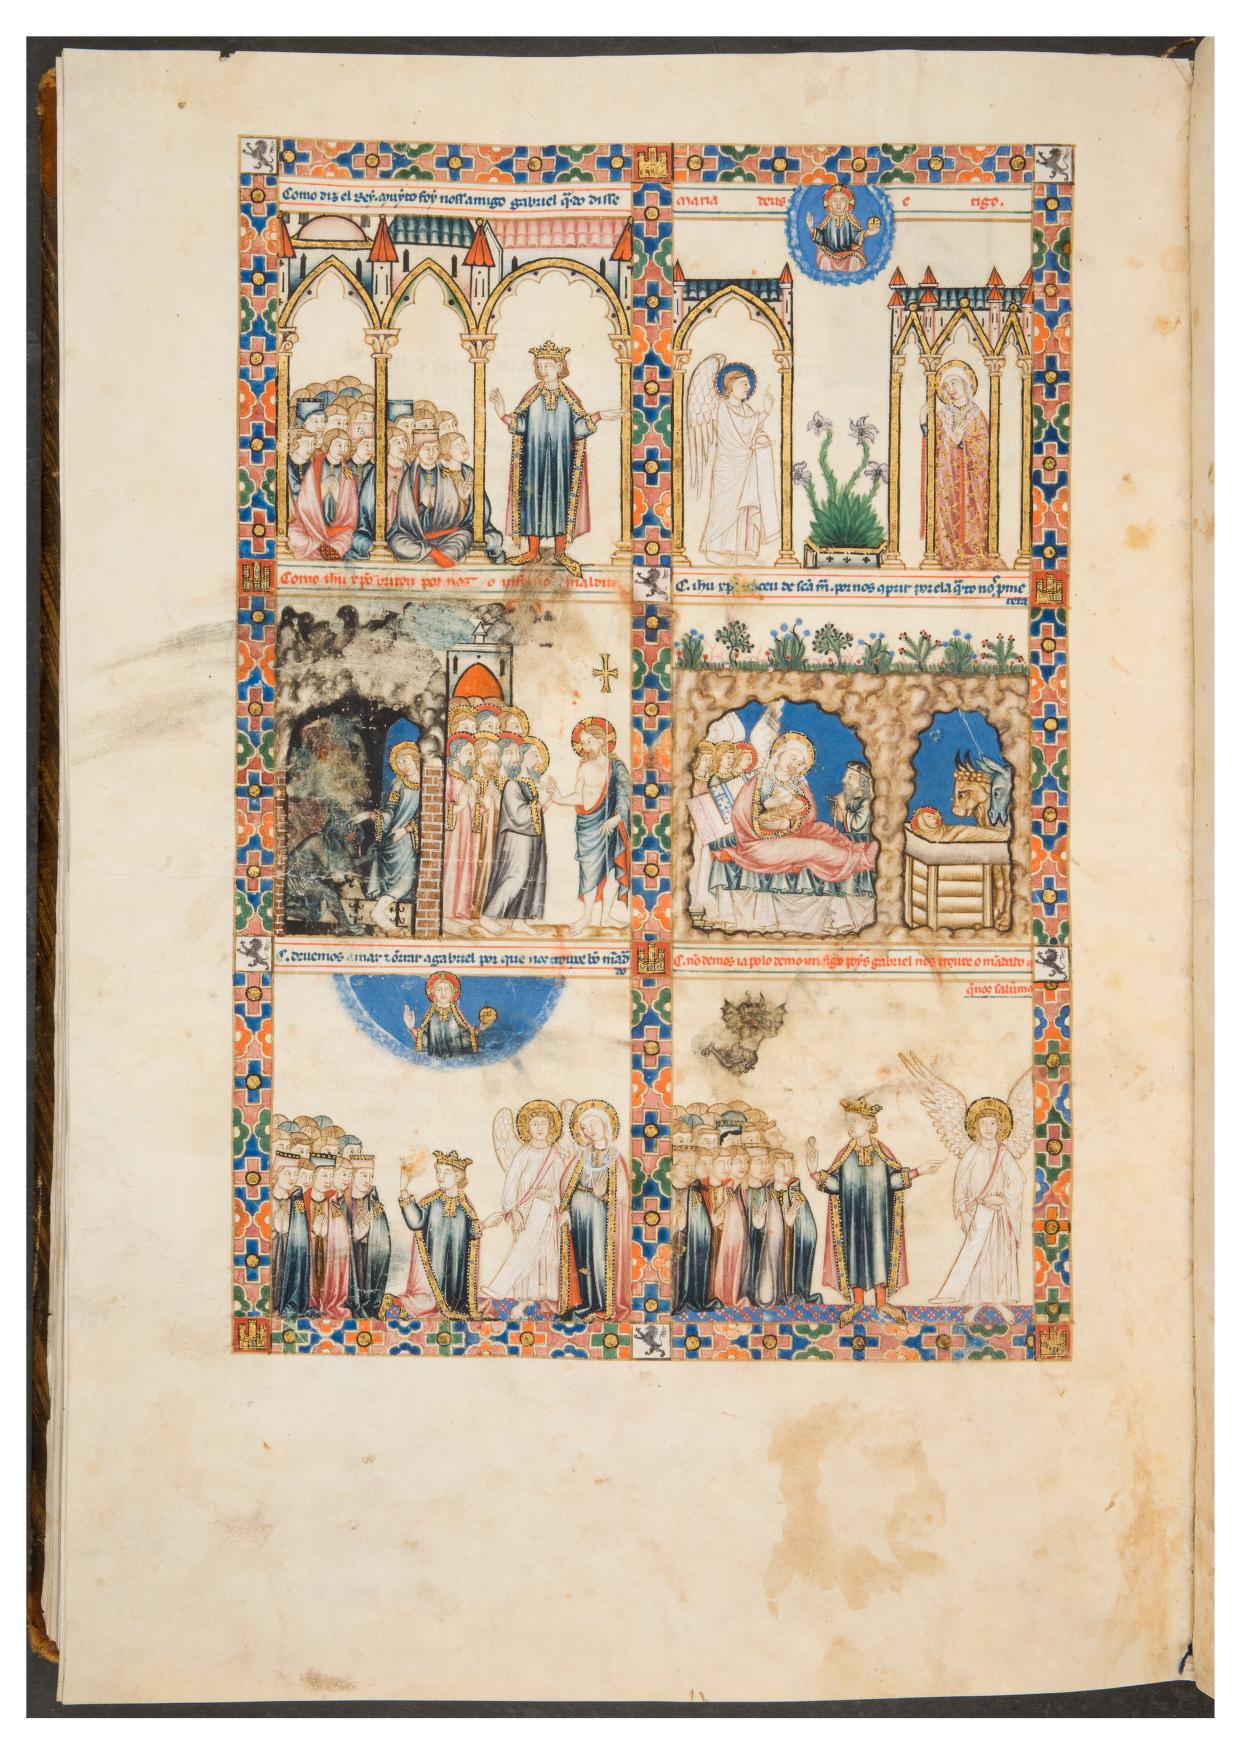 Como diz el Rey. muyto foy noss amigo gabriel q̃do disse
maria deus e tigo.
Como ihu xpo britou por nos o maldito
C. ihu xpo naceu de scã m̃. por nos 9prir por ela q̃to nos pme
tera
C. deuemos amar ⁊ õrrar a gabriel por que nos trouxe bõ mãda
do
C. nõ demos ia polo demo un figo poys gabriel nos trouxe o mãdado
q̃ nos saluou